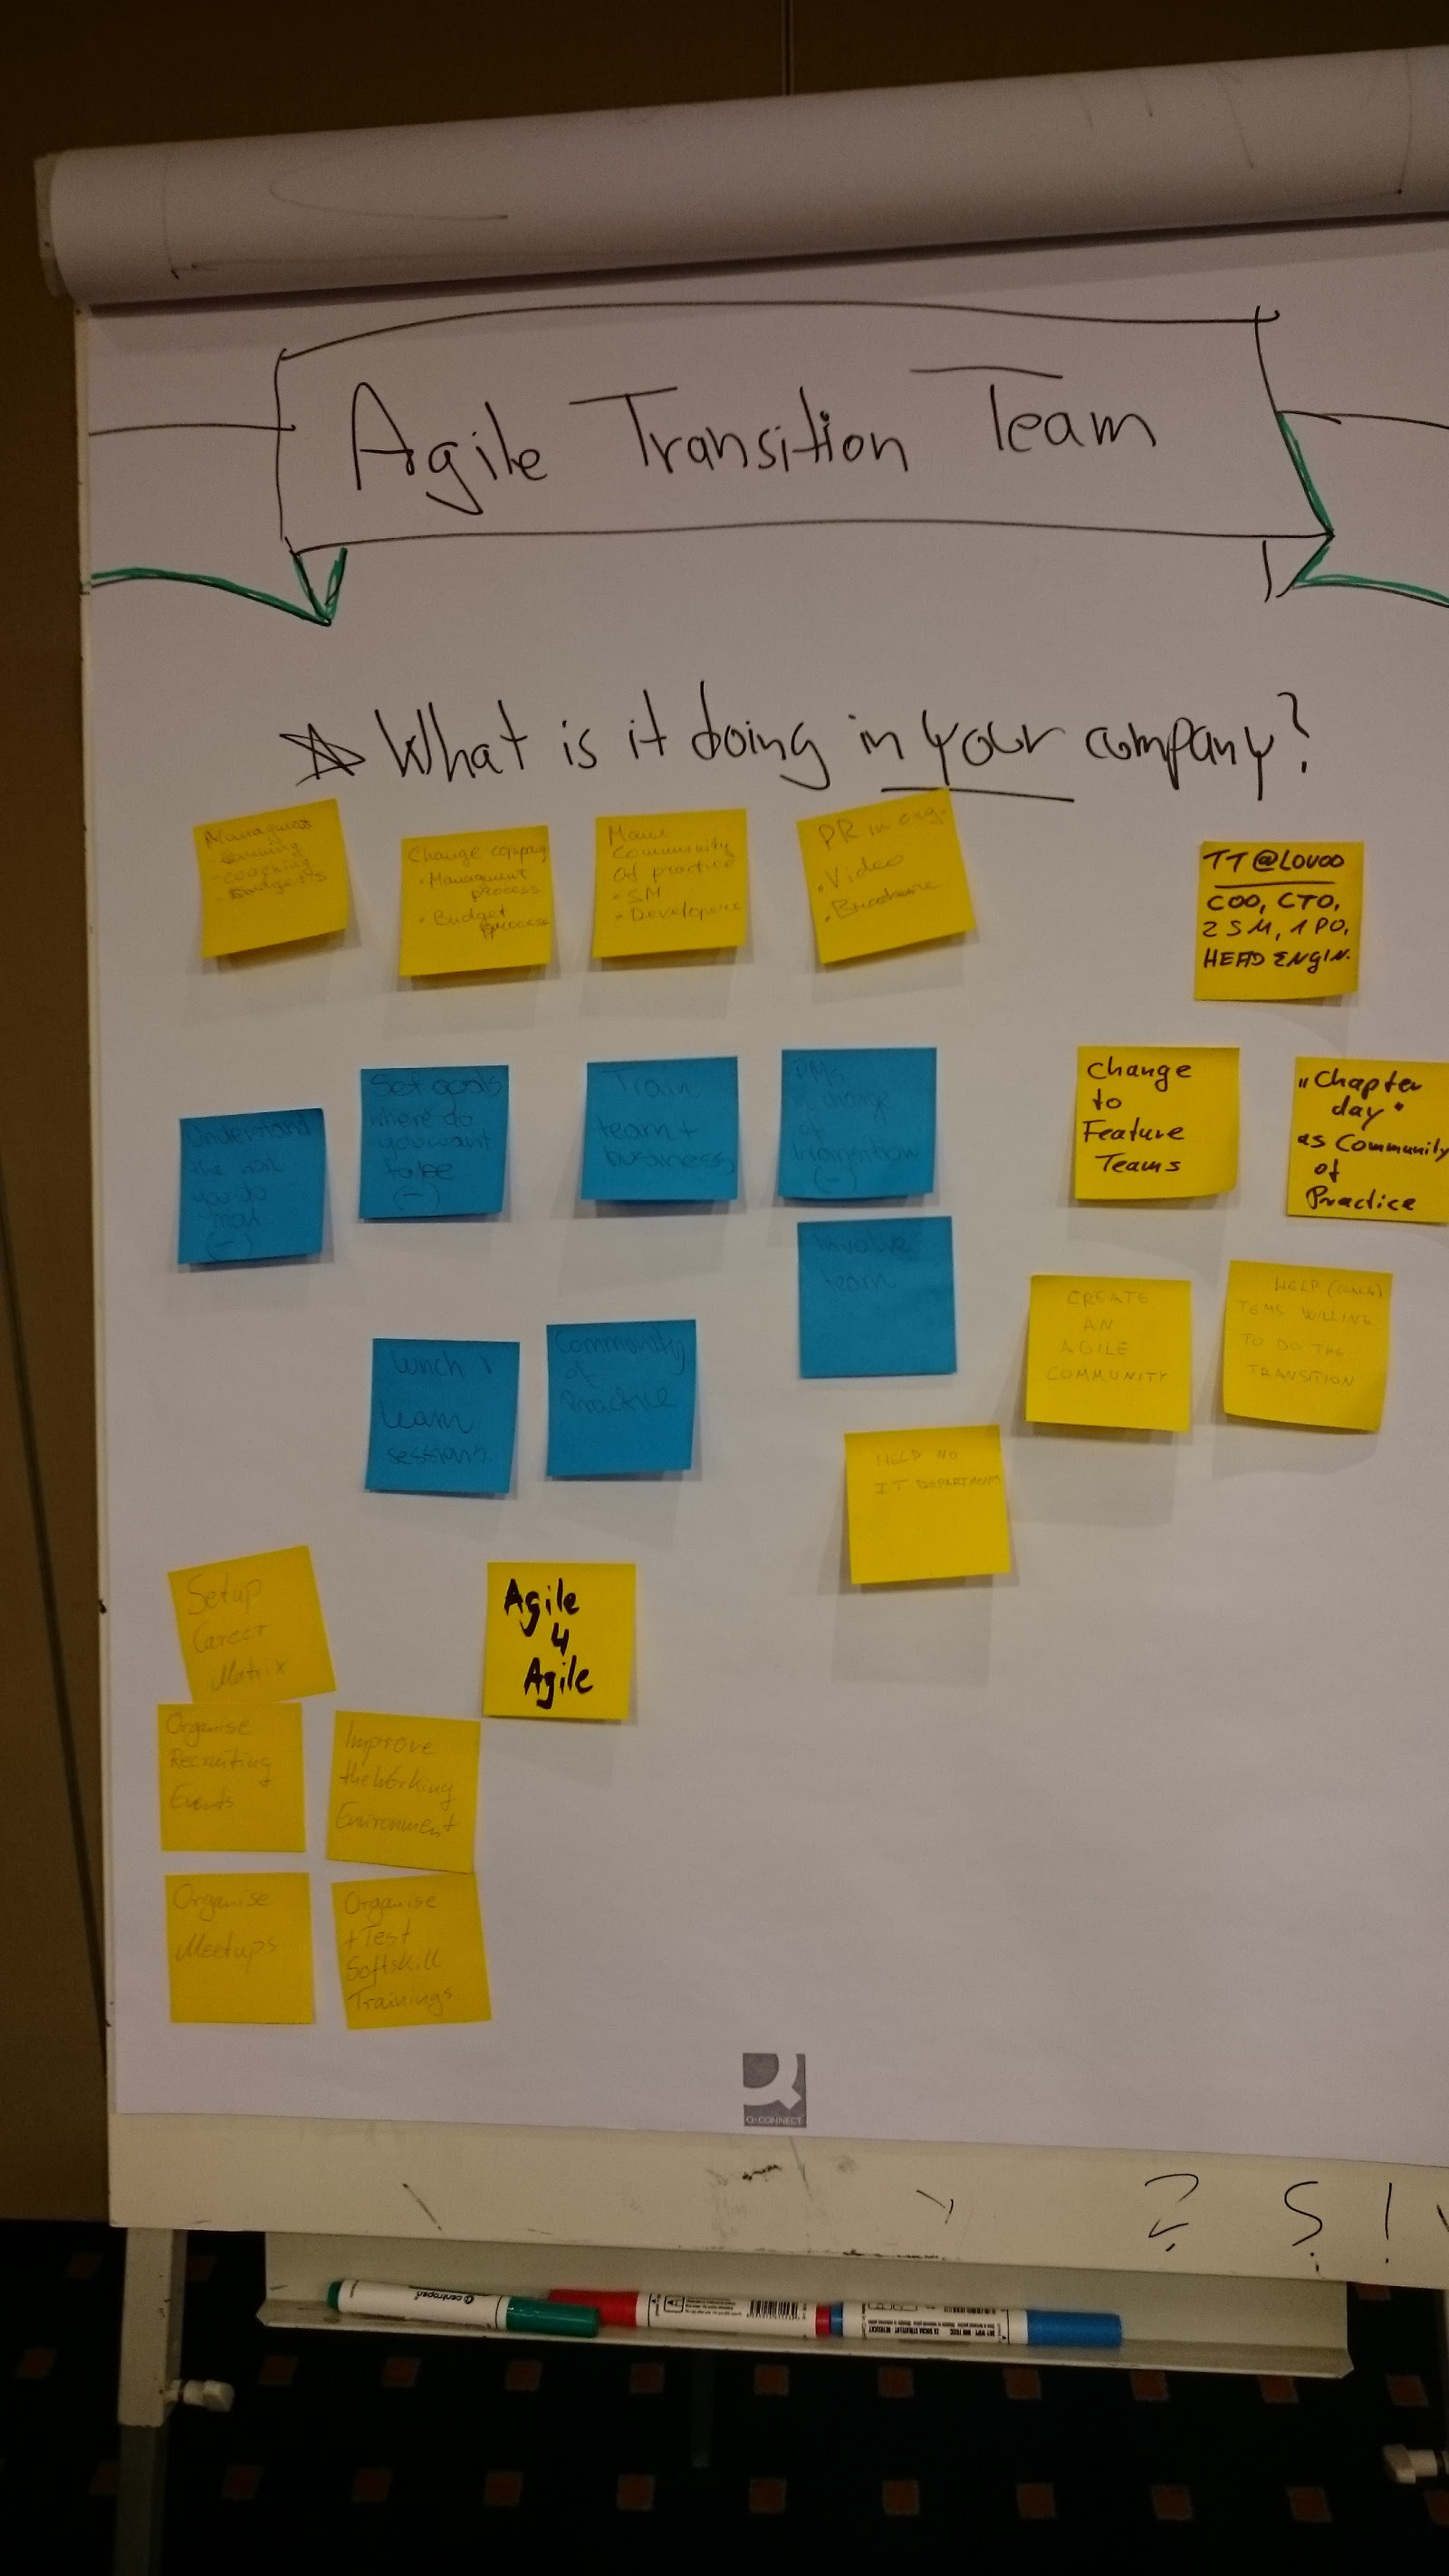 Agile Transition Team
What is it doing in your company?
Managment
- coaching
- Budgets
Change company
• Managment
process
• Budget
process
Community
of practice
• SM
• Developers
PR in org.
• Video
• Brochure
TT @LOVOO
COO, CTO,
2 SM, 1 PO,
HEAD ENGIN.
Understand
the
you do
not
(-)
Set goals
where do
you want
to be
(-)
Train
team +
business
PMs
in charge
of
transition
(-)
Change
to
Feature
Teams
„Chapter
day"
as Community
of
Practice
Involve
team
CREATE
AN
AGILE
COMMUNITY
HELP (COACH)
TEMS WILLING
TO DO THE
TRANSITION
Lunch
learn
sessions
Community
of
Practice
HELP NO
IT DEPARTMENT
Setup
Career
Matrix
Agile
4
Agile
Organise
Recruiting
Events
Improve
the Working
Environment
Organise
Meetups
Organise
+ Test
Softskill
Trainings
Q-CONNECT
centropen